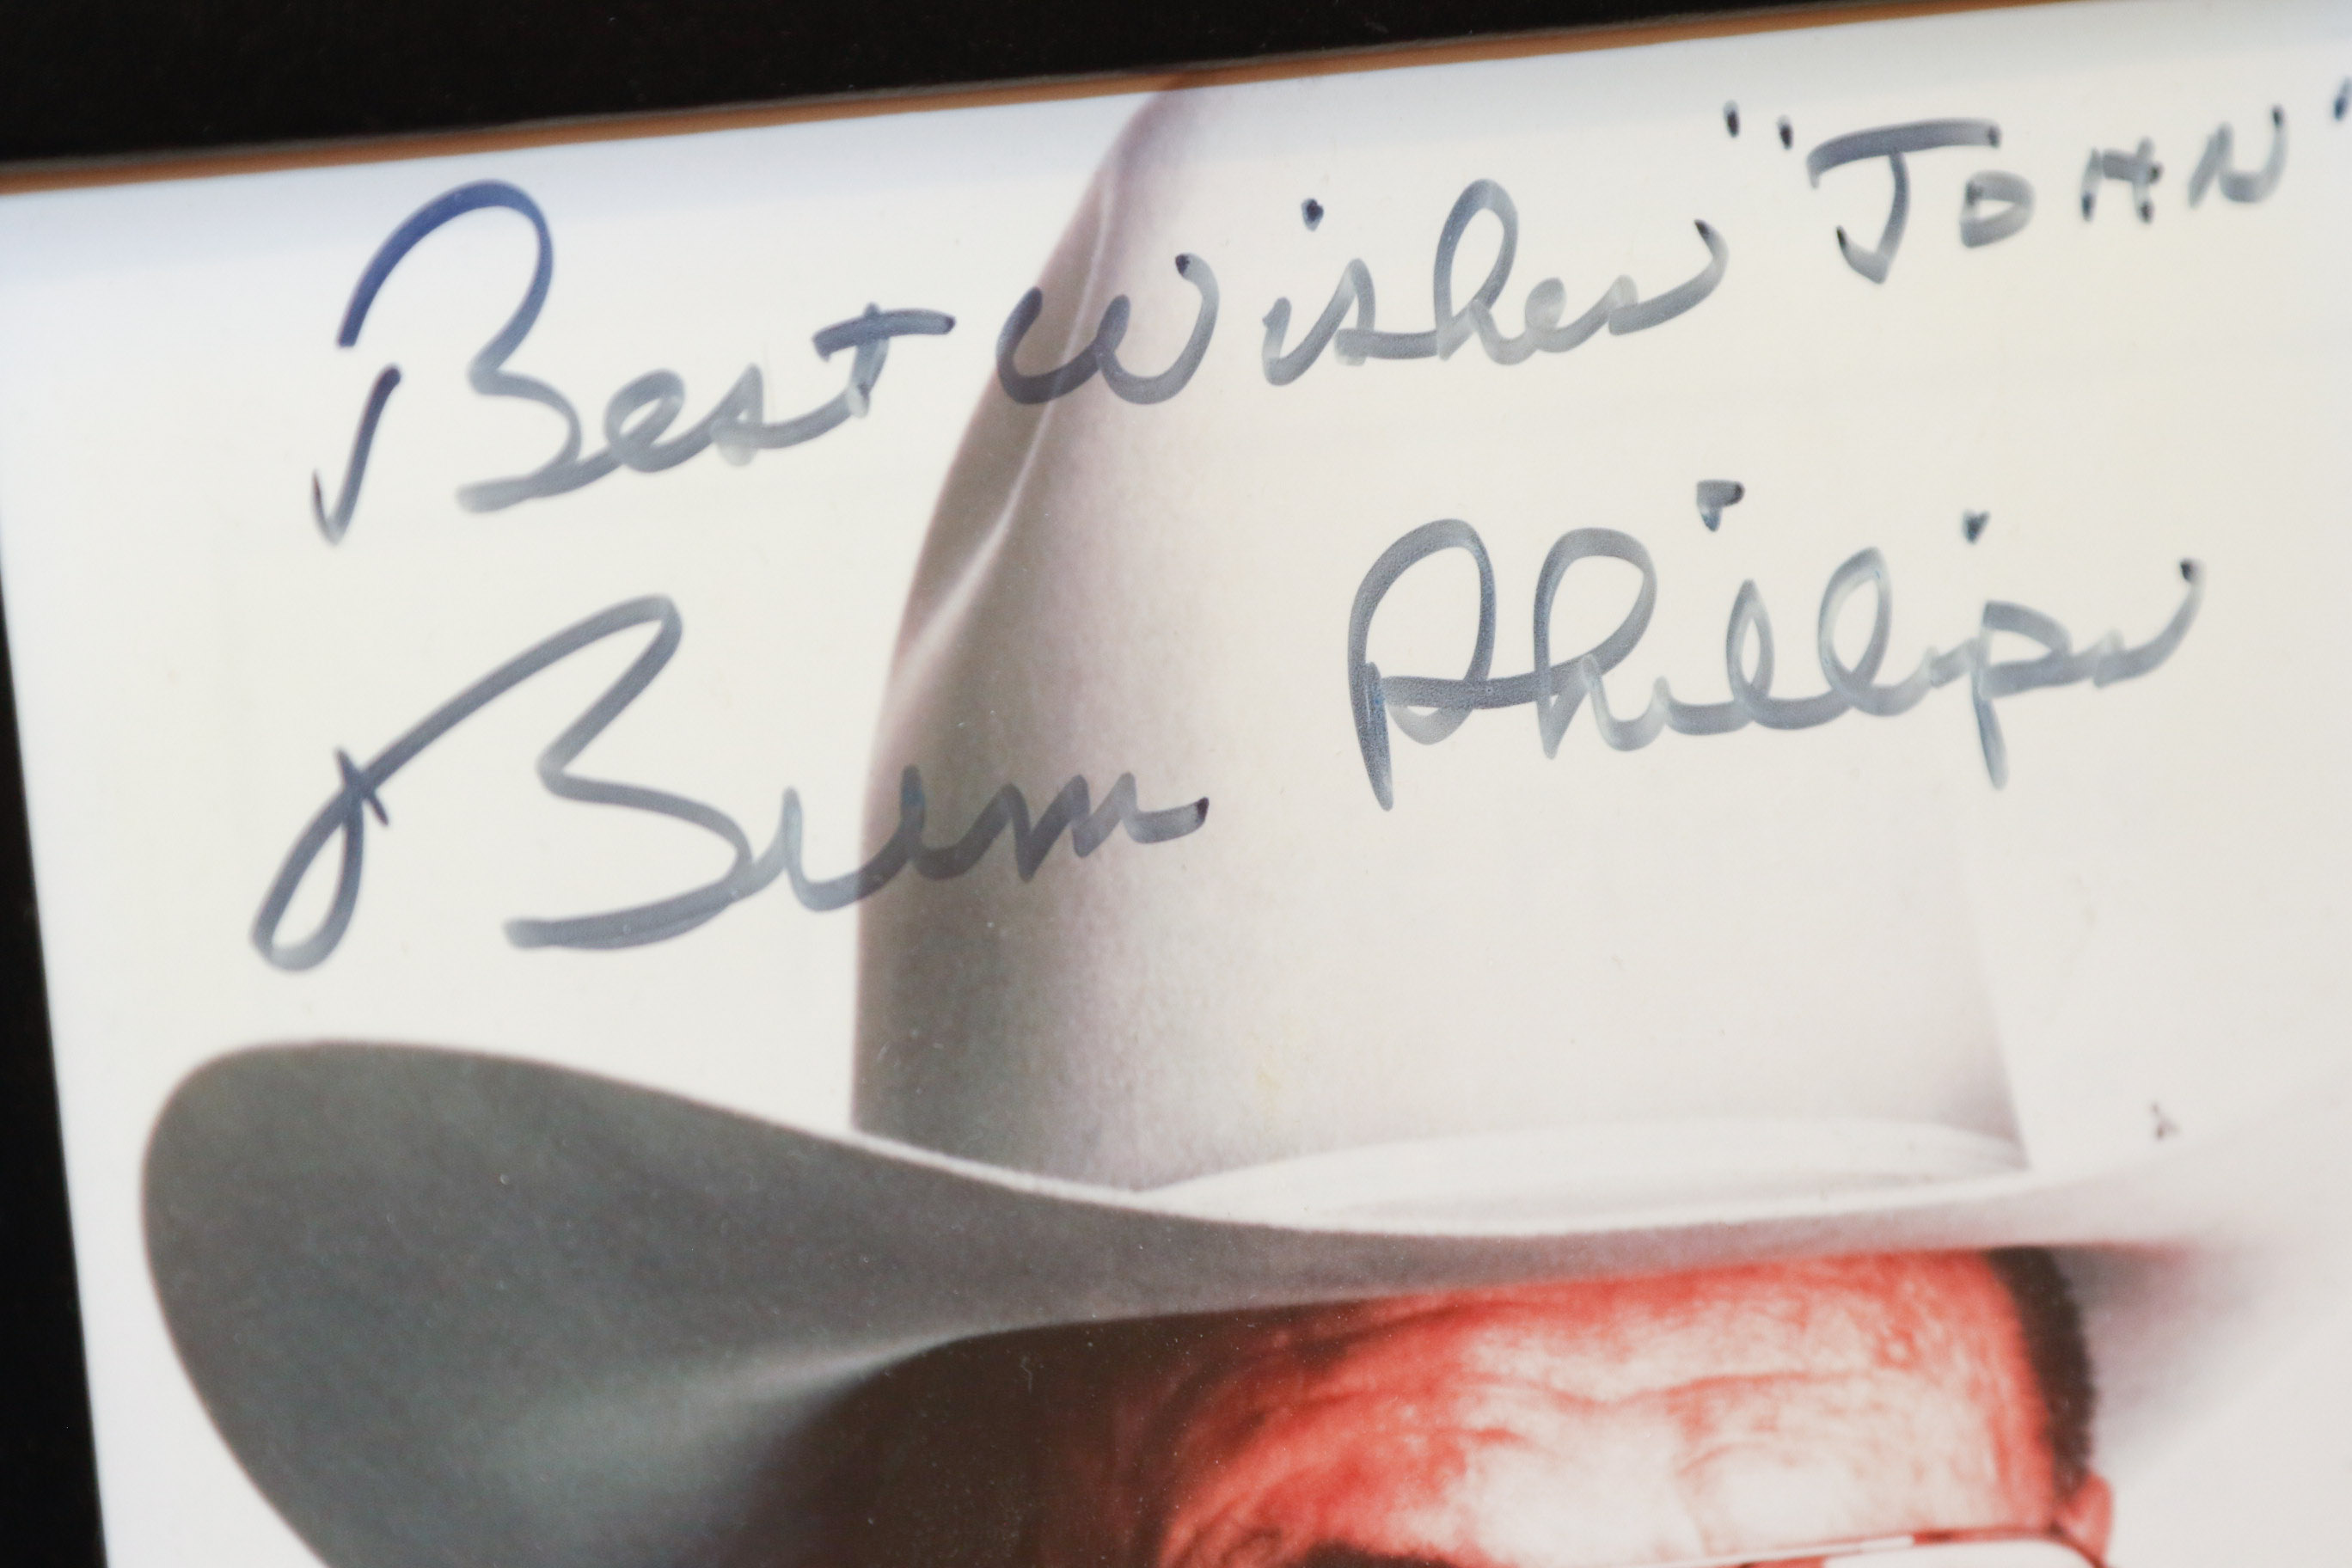 Best Wishes "JOHN"
Bum Phillips